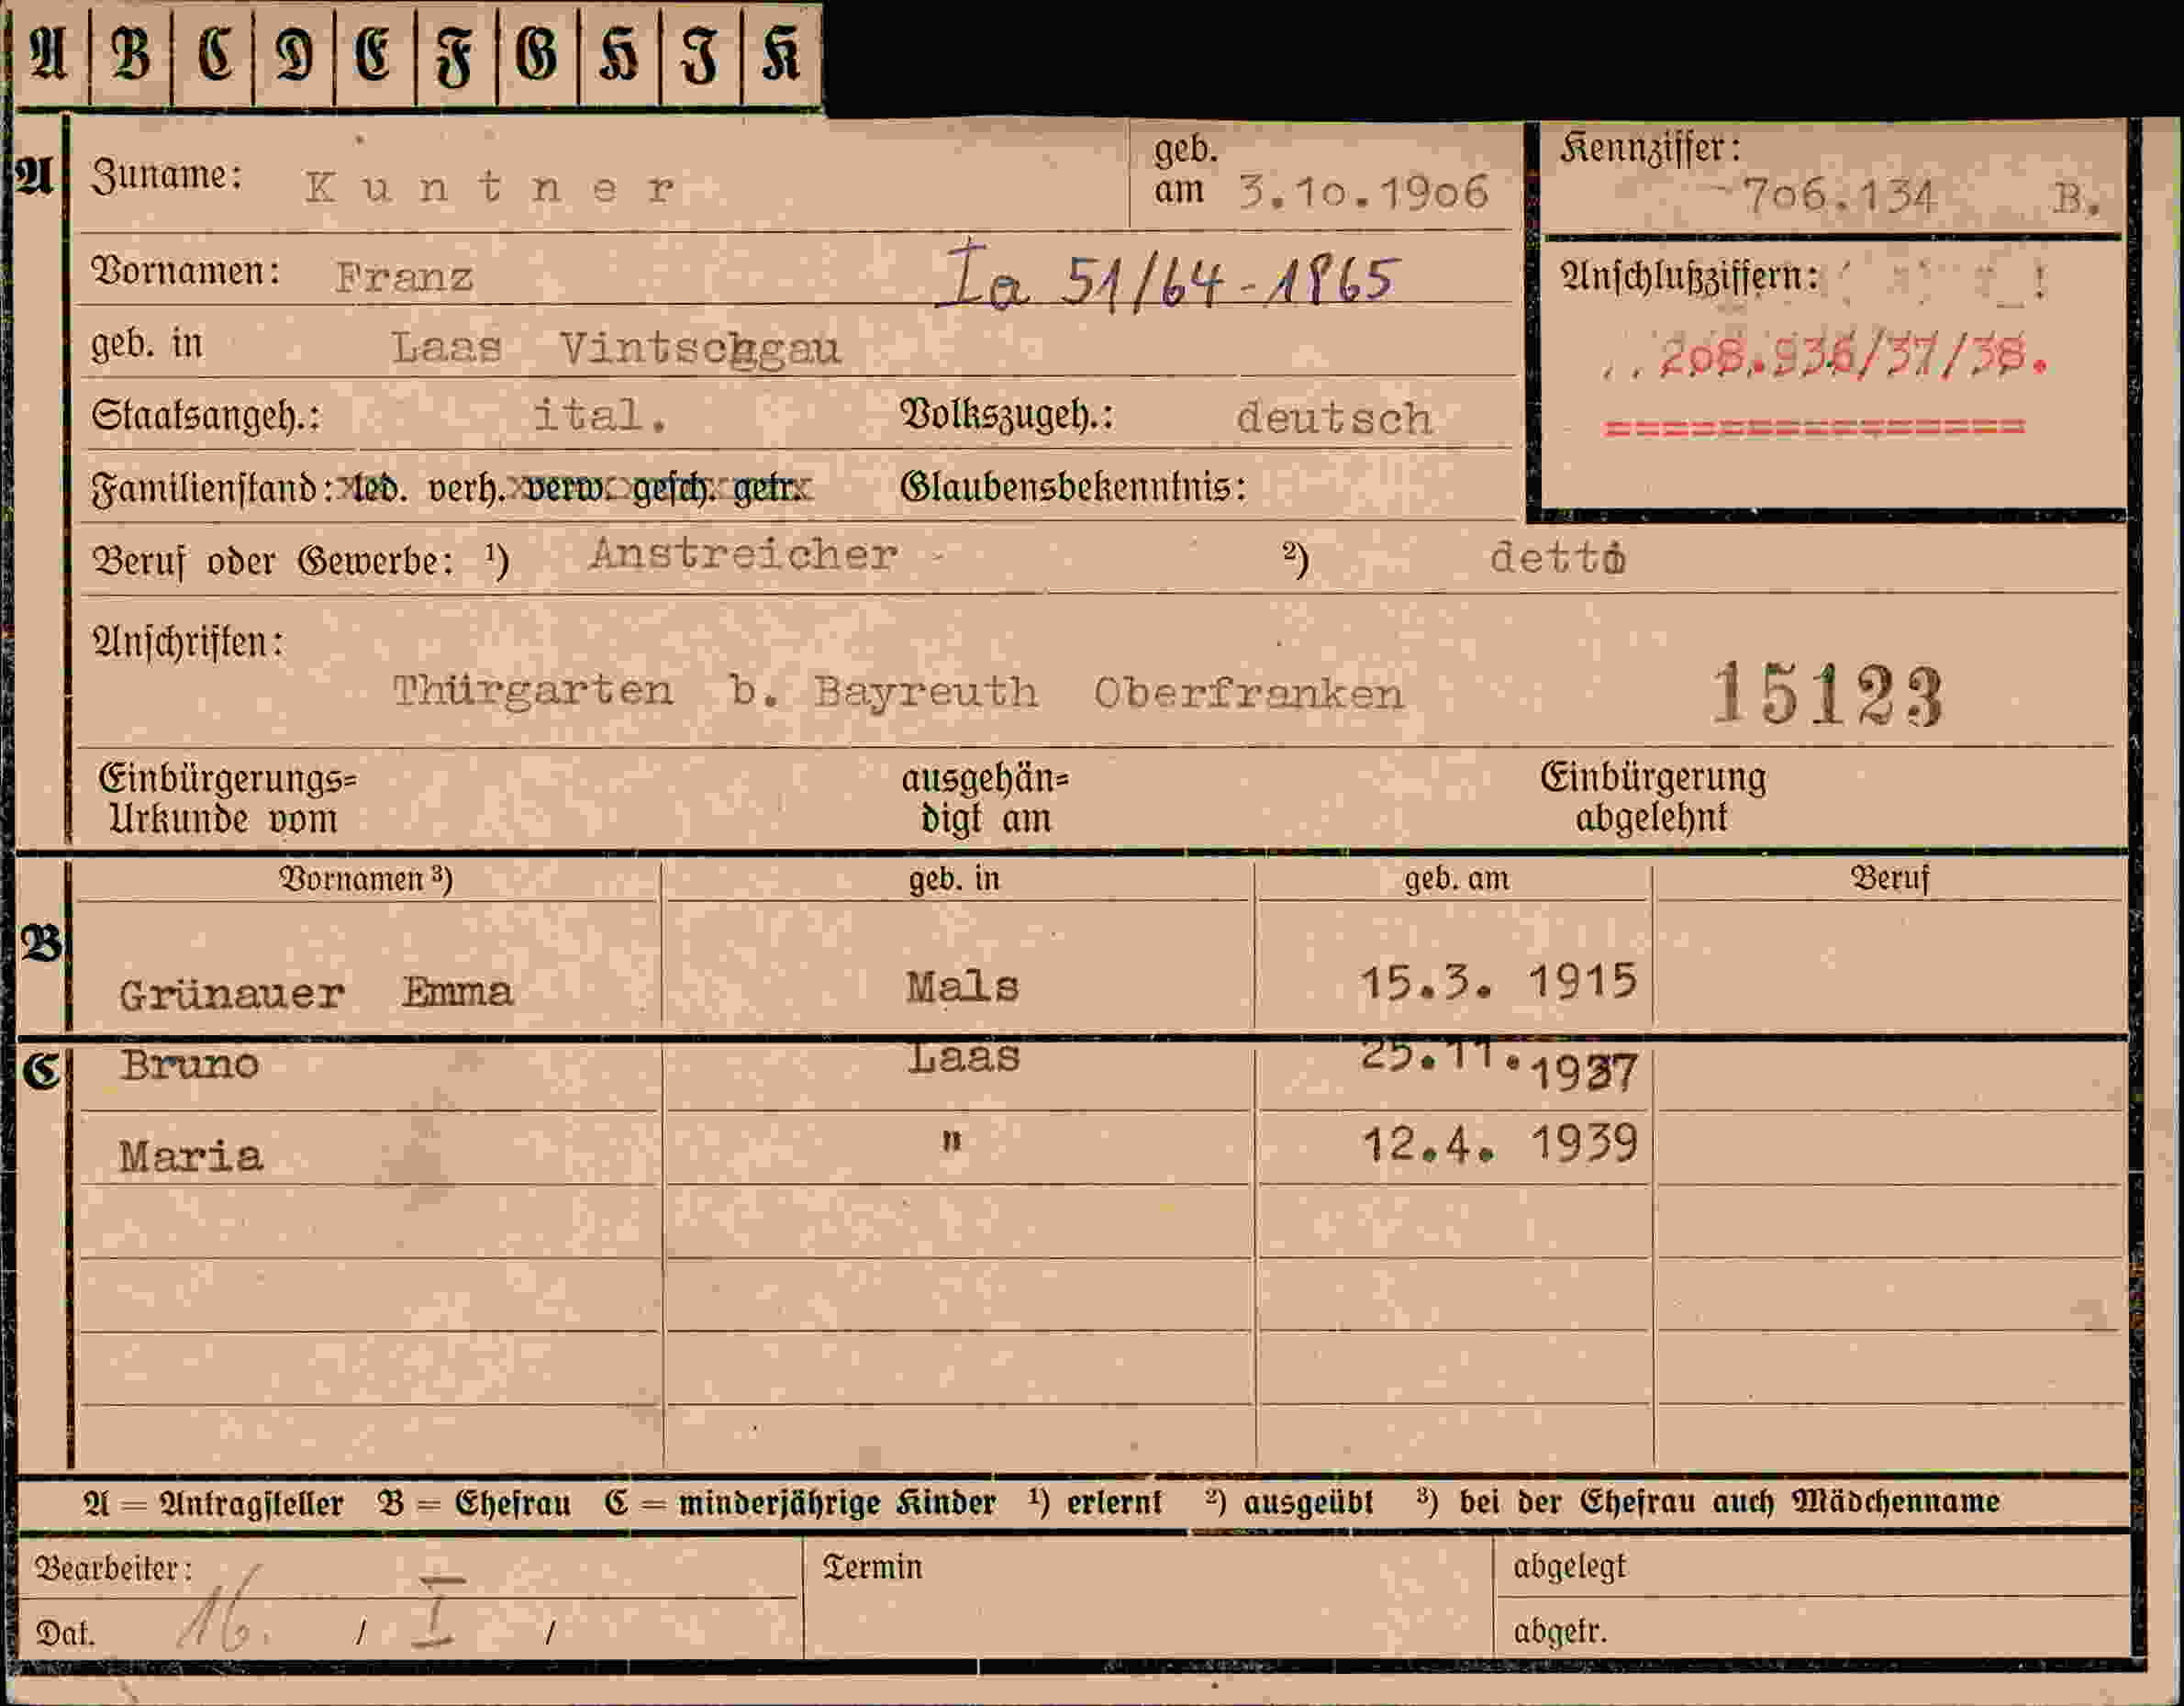 A B C D E F G H I K
A Zuname: Kuntner geb. am 3.10.1906 Kennziffer: 706.134 B.
Vornamen: Franz Ia 51/64-1865 Anschlußziffern:
208.936/37/38.
geb. in Laas Vintschgau
Staatsangeh.: ital. Volkszugeh.: deutsch
Familienstand: led. verh. verw. gesch. getr. Glaubensbekenntnis:
Beruf oder Gewerbe: ¹) Anstreicher ²) detto
Anschriften:
Thürgarten b. Bayreuth Oberfranken 15123
Einbürgerungs= ausgehän= Einbürgerung
Urkunde vom digt am abgelehnt
Vornamen ³) geb. in geb. am Beruf
B Grünauer Emma Mals 15.3. 1915
C Bruno Laas 25.11.1937
Maria " 12.4. 1939
A = Antragsteller B = Ehefrau C = minderjährige Kinder ¹) erlernt ²) ausgeübt ³) bei der Ehefrau auch Mädchenname
Bearbeiter: Termin abgelegt
Dat. 16. / I / abgetr.